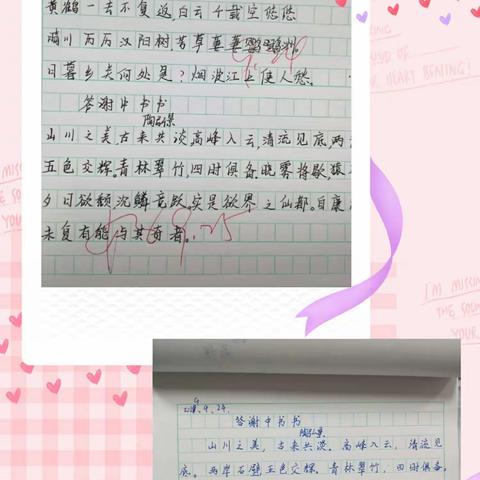 黄鹤一去不复返白云千载空悠悠
晴川历历汉阳树芳草萋萋鹦鹉洲
日暮乡关何处是？烟波江上使人愁.
答谢中书书
陶弘景
山川之美古来共谈,高峰入云,清流见底,两
五色交辉.青林翠竹,四时俱备.晓雾将歇,猿
夕日欲颓,沉鳞竞跃.实是欲界之仙都.自康
未复有能与其奇者.
I'M MISSIN
THE SOUN
YOUR
答谢中书书
陶弘景
山川之美，古来共谈。高峰入云，清流见
底。两岸石壁五色交辉。青林翠竹，四时俱备。